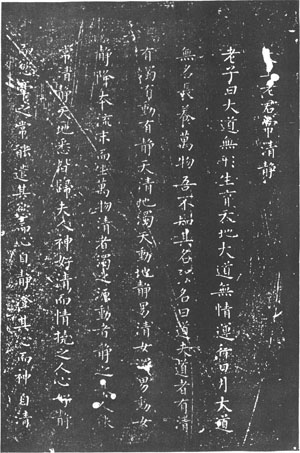 老君常清靜
老子曰大道無形生育天地大道無情運行日月大道
無名長養萬物吾不知其名強名曰道夫道者有清
有濁有動有靜天清地濁天動地靜男清女濁男動女
靜降本流末而生萬物清者濁之源動者靜之人能
常清靜天地悉皆歸夫人神好清而情之人心好靜
而慾牽之常能遣其慾而心自靜澄其心而神自清